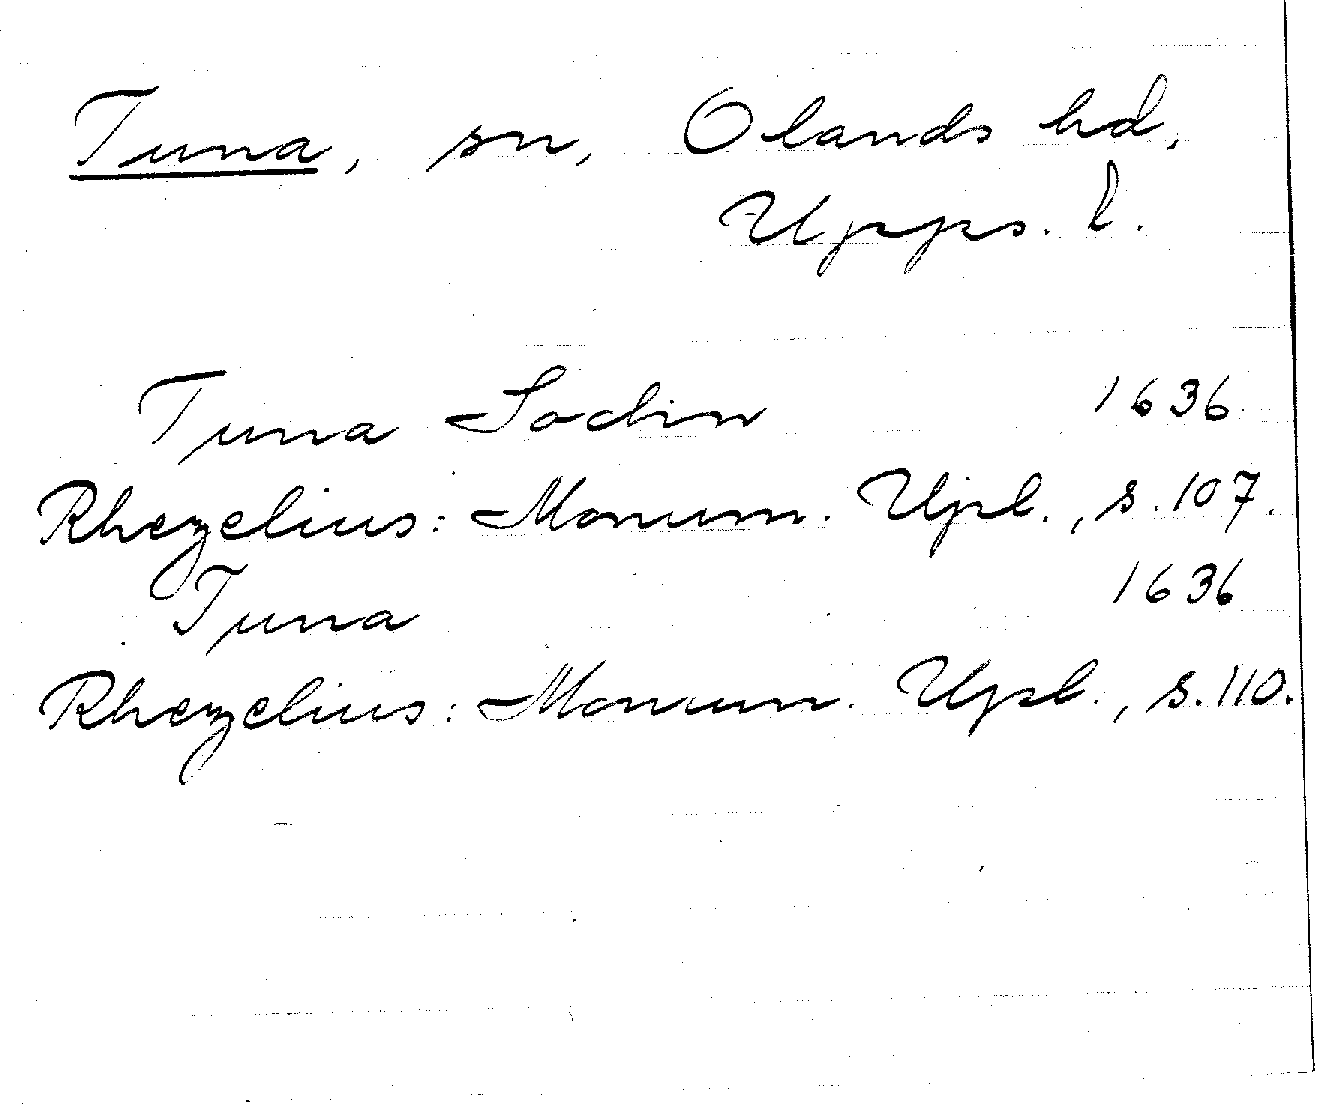 Tuna, sn, Olands hd,
Upps. l.
Tuna Sochn 1636
Rhezelius: Monum. Upl., s. 107.
Tuna 1636
Rhezelius: Monum. Upl., s. 110.